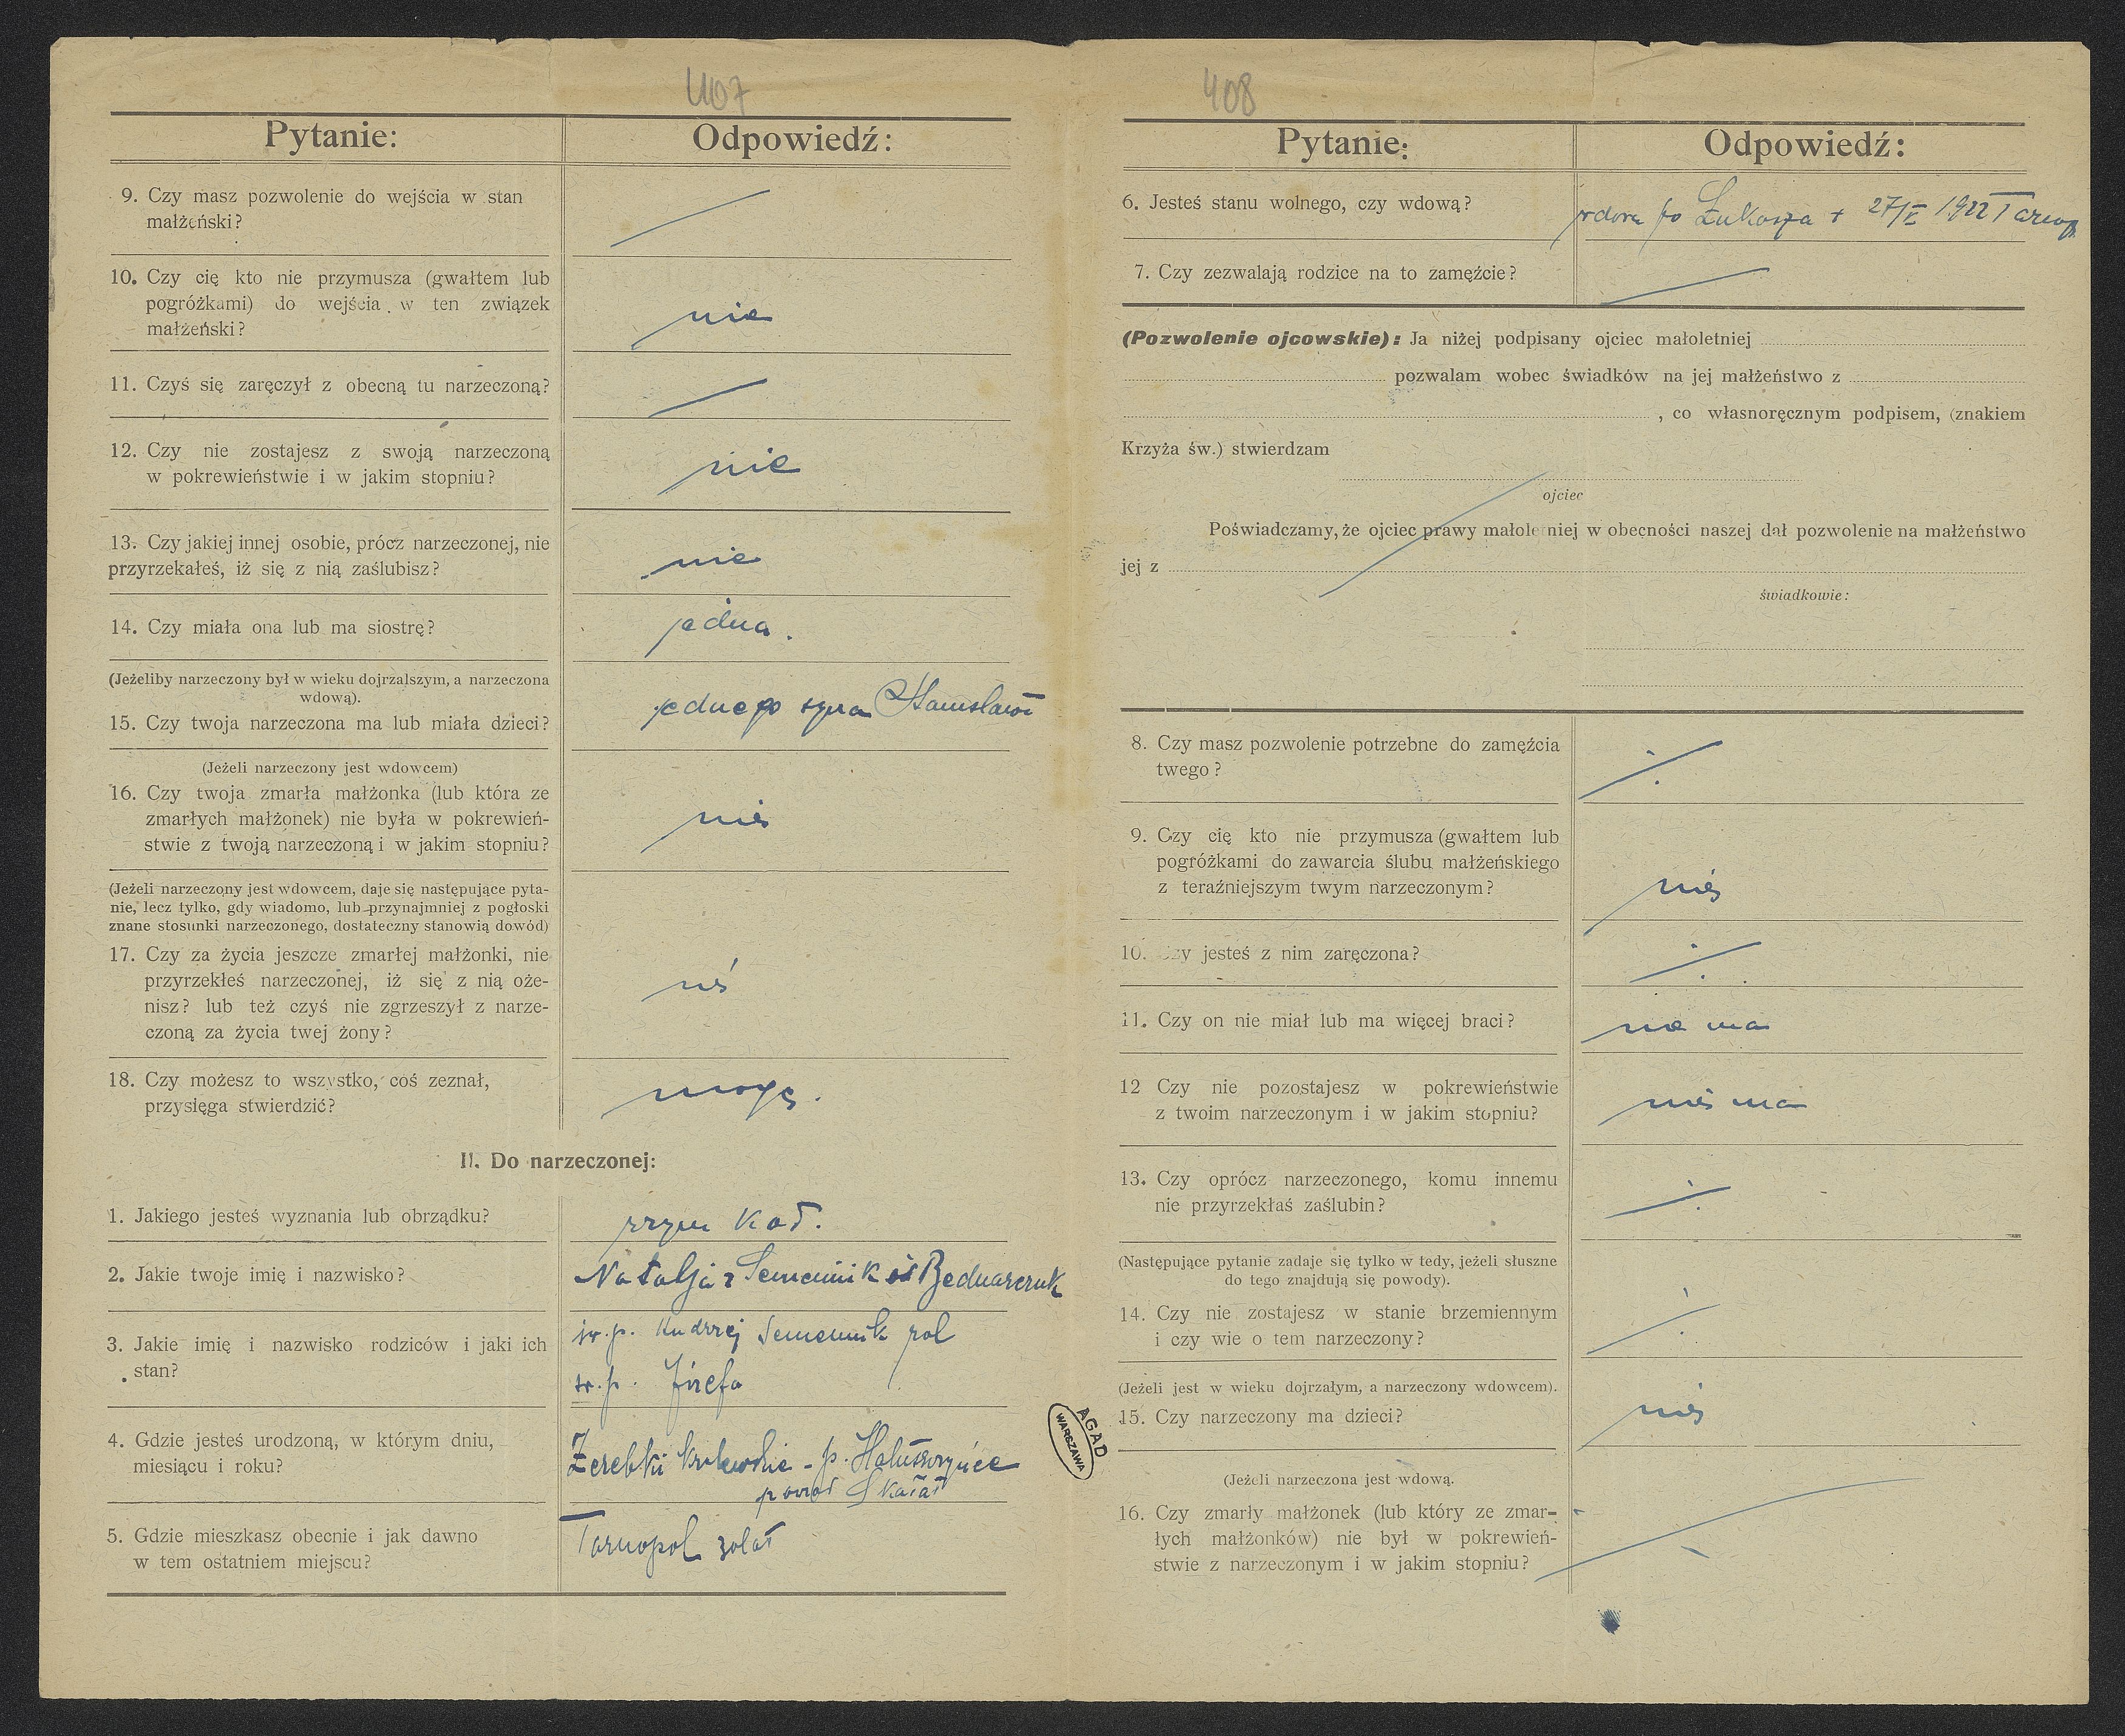 407
Pytanie: Odpowiedź:
9. Czy masz pozwolenie do wejścia w stan
małżeński?
10. Czy cię kto nie przymusza (gwałtem lub
pogróżkami) do wejścia w ten związek
małżeński?
nie
11. Czyś się zaręczył z obecną tu narzeczoną?
12. Czy nie zostajesz z swoją narzeczoną
w pokrewieństwie i w jakim stopniu?
nie
13. Czy jakiej innej osobie, prócz narzeczonej, nie
przyrzekałeś, iż się z nią zaślubisz?
nie
14. Czy miała ona lub ma siostrę?
jedna.
(Jeżeliby narzeczony był w wieku dojrzalszym, a narzeczona
wdową).
15. Czy twoja narzeczona ma lub miała dzieci?
jednego syna Stanisława
(Jeżeli narzeczony jest wdowcem)
16. Czy twoja zmarła małżonka (lub która ze
zmarłych małżonek) nie była w pokrewień-
stwie z twoją narzeczoną i w jakim stopniu?
nie
(Jeżeli narzeczony jest wdowcem, daje się następujące pyta-
nie, lecz tylko, gdy wiadomo, lub przynajmniej z pogłoski
znane stosunki narzeczonego, dostateczny stanowią dowód)
17. Czy za życia jeszcze zmarłej małżonki, nie
przyrzekłeś narzeczonej, iż się z nią oże-
nisz? lub też czyś nie zgrzeszył z narze-
czoną za życia twej żony?
nie
18. Czy możesz to wszystko, coś zeznał,
przysięga stwierdzić?
mogę.
II. Do narzeczonej:
1. Jakiego jesteś wyznania lub obrządku?
rzym kat.
2. Jakie twoje imię i nazwisko?
Natalja z Semeniuków Bednarczuk
3. Jakie imię i nazwisko rodziców i jaki ich
stan?
św. p. Andrzej Semeniuk rol
św. p. Józefa
4. Gdzie jesteś urodzoną, w którym dniu,
miesiącu i roku?
Żerebki Królewskie - p. Hałuszczyńce
powiat Skałat
5. Gdzie mieszkasz obecnie i jak dawno
w tem ostatniem miejscu?
Tarnopol lat
408
Pytanie: Odpowiedź:
6. Jesteś stanu wolnego, czy wdową?
wdowa po Łukaszu + 27/V 1922 Tarnop.
7. Czy zezwalają rodzice na to zamęźcie?
(Pozwolenie ojcowskie): Ja niżej podpisany ojciec małoletniej
pozwalam wobec świadków na jej małżeństwo z
, co własnoręcznym podpisem, (znakiem
Krzyża św.) stwierdzam
ojciec
Poświadczamy, że ojciec prawy małoletniej w obecności naszej dał pozwolenie na małżeństwo
jej z
świadkowie:
8. Czy masz pozwolenie potrzebne do zamęźcia
twego?
9. Czy cię kto nie przymusza (gwałtem lub
pogróżkami do zawarcia ślubu małżeńskiego
z teraźniejszym twym narzeczonym?
nie
10. Czy jesteś z nim zaręczona?
11. Czy on nie miał lub ma więcej braci?
nie ma
12 Czy nie pozostajesz w pokrewieństwie
z twoim narzeczonym i w jakim stopniu?
nie ma
13. Czy oprócz narzeczonego, komu innemu
nie przyrzekłaś zaślubin?
(Następujące pytanie zadaje się tylko w tedy, jeżeli słuszne
do tego znajdują się powody).
14. Czy nie zostajesz w stanie brzemiennym
i czy wie o tem narzeczony?
(Jeżeli jest w wieku dojrzałym, a narzeczony wdowcem).
15. Czy narzeczony ma dzieci?
nie
(Jeżeli narzeczona jest wdową.
16. Czy zmarły małżonek (lub który ze zmar-
łych małżonków) nie był w pokrewień-
stwie z narzeczonym i w jakim stopniu?
AGAD
WARSZAWA